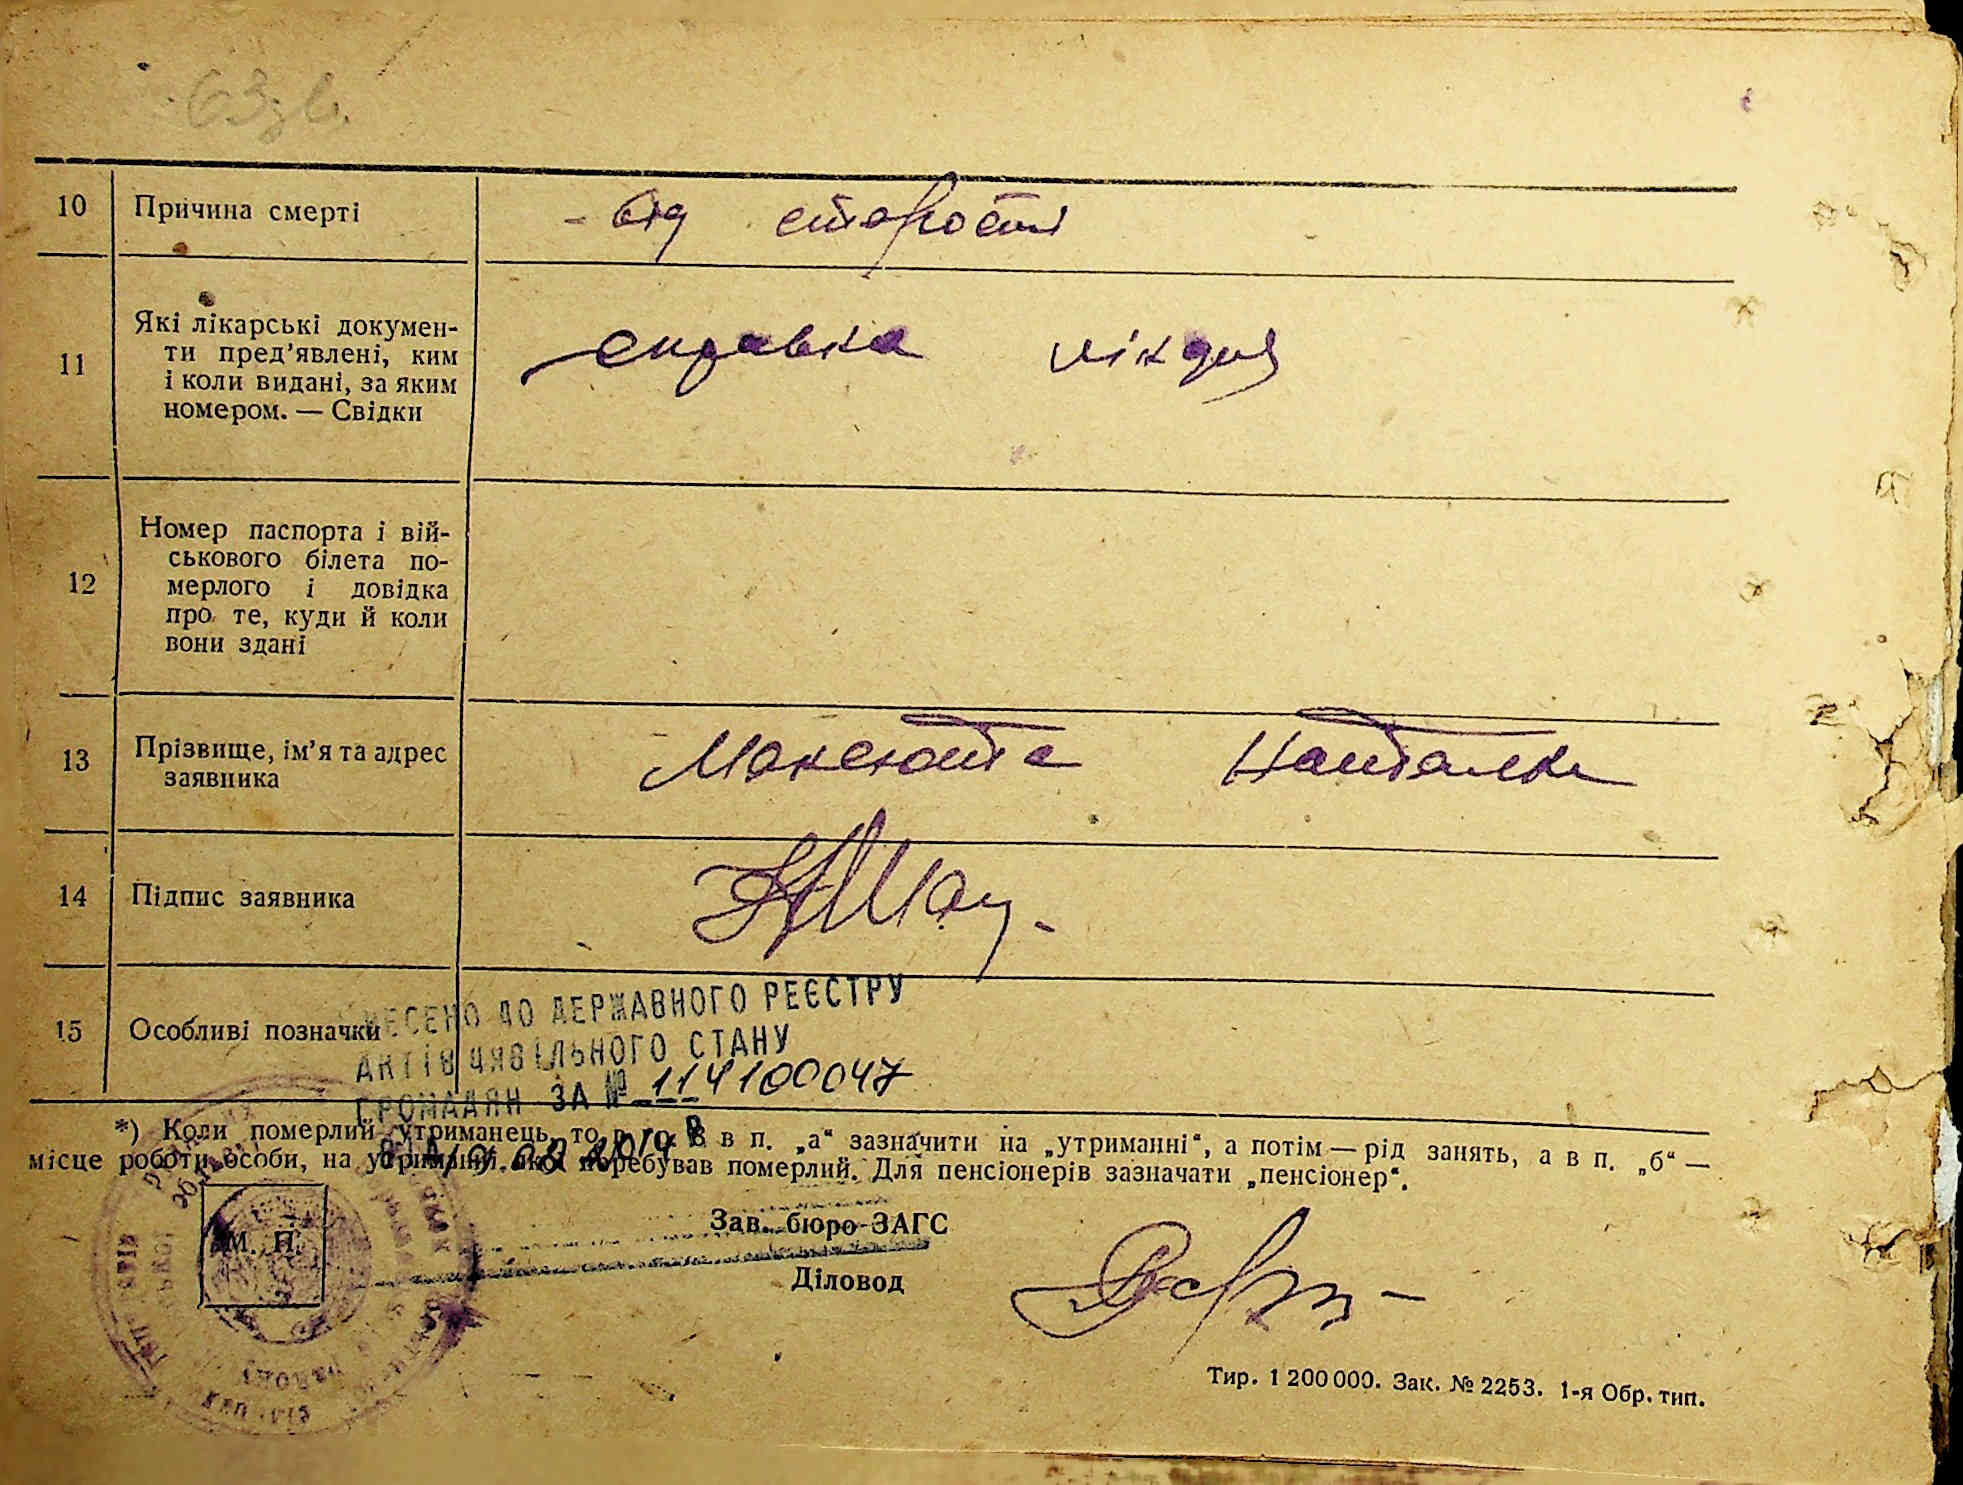 63зв.
10 Причина смерті - від старості
11 Які лікарські докумен-
ти пред'явлені, ким
і коли видані, за яким
номером. — Свідки
справка лікаря
12 Номер паспорта і вій-
ськового білета по-
мерлого і довідка
про те, куди й коли
вони здані
13 Прізвище, ім'я та адрес
заявника
Максюта Наталка
14 Підпис заявника
15 Особливі позначки
ВНЕСЕНО ДО ДЕРЖАВНОГО РЕЄСТРУ
АКТІВ ЦИВІЛЬНОГО СТАНУ
ГРОМАДЯН ЗА № 114100047
*) Коли померлий утриманець, то в гр. 8 в п. „а“ зазначити на „утриманні“, а потім — рід занять, а в п. „б“ —
місце роботи особи, на утриманні якої перебував померлий. Для пенсіонерів зазначати „пенсіонер“.
М. П.
Зав. бюро ЗАГС
Діловод
Тир. 1 200 000. Зак. № 2253. 1-я Обр. тип.